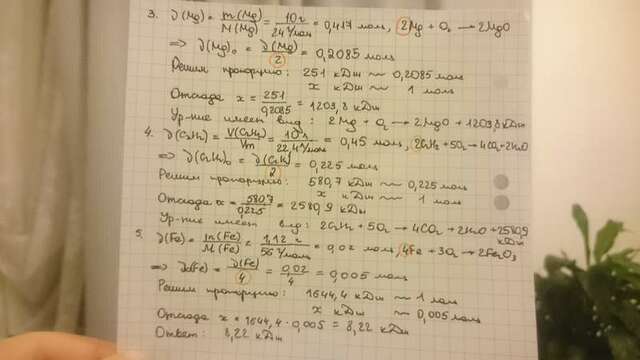 3. ν(Mg) = m(Mg)/M(Mg) = 10 г/24 г/моль = 0,417 моль, 2Mg + O₂ → 2MgO
⇒ ν(Mg)₀ = ν(Mg)/2 = 0,2085 моль
Решим пропорцию: 251 кДж ~ 0,2085 моль
x кДж ~ 1 моль
Отсюда x = 251/0,2085 = 1203,8 кДж
Ур-ние имеет вид: 2Mg + O₂ → 2MgO + 1203,8 кДж
4. ν(C₂H₂) = V(C₂H₂)/Vm = 10 л/22,4 л/моль = 0,45 моль, 2C₂H₂ + 5O₂ → 4CO₂ + 2H₂O
⇒ ν(C₂H₂)₀ = ν(C₂H₂)/2 = 0,225 моль
Решим пропорцию: 580,7 кДж ~ 0,225 моль
x кДж ~ 1 моль
Отсюда x = 580,7/0,225 = 2580,9 кДж
Ур-ние имеет вид: 2C₂H₂ + 5O₂ → 4CO₂ + 2H₂O + 2580,9 кДж
5. ν(Fe) = m(Fe)/M(Fe) = 1,12 г/56 г/моль = 0,02 моль, 4Fe + 3O₂ → 2Fe₂O₃
⇒ (Fe) = ν(Fe)/4 = 0,02/4 = 0,005 моль
Решим пропорцию: 1644,4 кДж ~ 1 моль
x кДж ~ 0,005 моль
Отсюда x = 1644,4 · 0,005 = 8,22 кДж
Ответ: 8,22 кДж